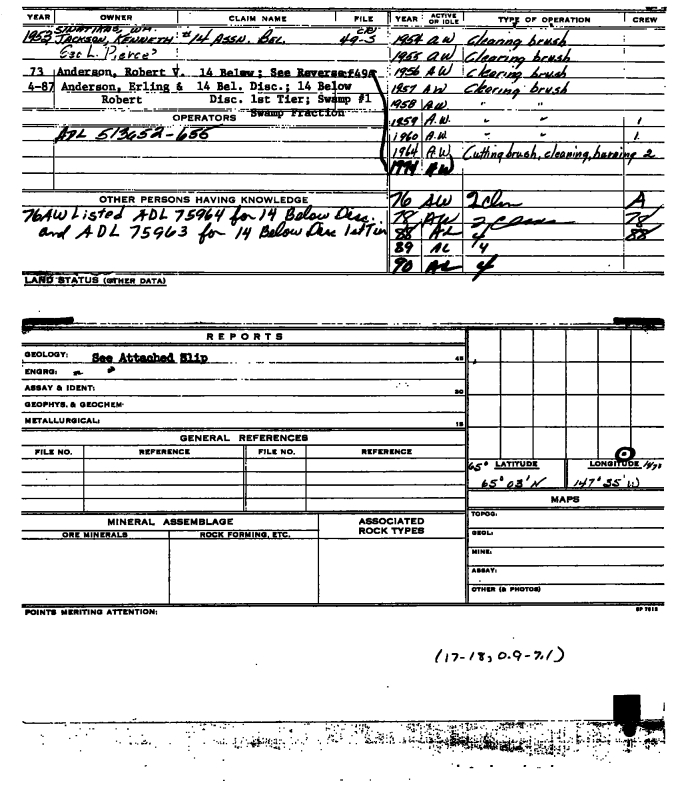 YEAR OWNER CLAIM NAME FILE
WM.
1953 JACKSON, KENNETH #14 ASSN. BEL. 49-5
Geo L. Pierce
73 Anderson, Robert V. 14 Below; See Reverse f49s
4-87 Anderson, Erling & 14 Bel. Disc.; 14 Below
Robert Disc. 1st Tier; Swamp #1
Swamp Fraction
OPERATORS
ADL 513652-655
OTHER PERSONS HAVING KNOWLEDGE
76AW Listed ADL 75964 for 14 Below Disc..
and ADL 75963 for 14 Below Disc 1st Tier
LAND STATUS (OTHER DATA)
YEAR ACTIVE OR IDLE TYPE OF OPERATION CREW
1954 AW Clearing brush
1955 AW Clearing brush
1956 AW Clearing brush
1957 AW Clearing brush
1958 AW " "
1959 A.W. " " 1
1960 A.W. " " 1
1964 A.W. Cutting brush, cleaning, burning 2
AW
76 AW 2 Clm A
78 AW 2 78
88 AL 4 88
89 AL 4
90 AL 4
REPORTS
GEOLOGY: See Attached Slip 45
ENGRG:
ASSAY & IDENT: 30
GEOPHYS. & GEOCHEM.
METALLURGICAL: 15
GENERAL REFERENCES
FILE NO. REFERENCE FILE NO. REFERENCE
MINERAL ASSEMBLAGE ASSOCIATED ROCK TYPES
ORE MINERALS ROCK FORMING, ETC.
65° LATITUDE LONGITUDE 147°
65° 03' N 147° 35' W
MAPS
TOPOG:
GEOL:
MINE:
ASSAY:
OTHER (& PHOTOS)
POINTS MERITING ATTENTION:
(17-18; 0.9-7.1)